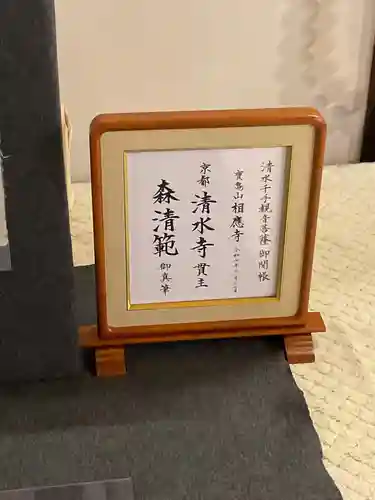 清水千手観音菩薩 御開帳
寶嵩山 相應寺
京都 清水寺 貫主
森清範 御真筆